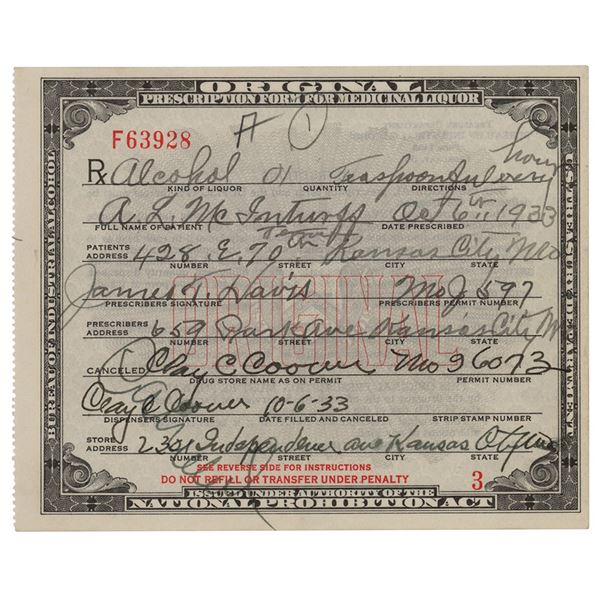 ORIGINAL
PRESCRIPTION FORM FOR MEDICINAL LIQUOR
F63928 A 1
Rx Alcohol Teaspoonful every hour
KIND OF LIQUOR QUANTITY DIRECTIONS
A. L. McInturff Oct 6th 1933
FULL NAME OF PATIENT DATE PRESCRIBED
PATIENTS ADDRESS 428 E. 70th Terrace Kansas City Mo
NUMBER STREET CITY STATE
James T. Davis Mo J 597
PRESCRIBERS SIGNATURE PRESCRIBERS PERMIT NUMBER
PRESCRIBERS ADDRESS 659 Park Ave Kansas City M
NUMBER STREET CITY STATE
CANCELED Clay C Coover Mo 96073
DRUG STORE NAME AS ON PERMIT PERMIT NUMBER
Clay C Coover 10-6-33
DISPENSERS SIGNATURE DATE FILLED AND CANCELED STRIP STAMP NUMBER
STORE ADDRESS 2301 Independence ave Kansas City Mo
NUMBER STREET CITY STATE
SEE REVERSE SIDE FOR INSTRUCTIONS
DO NOT REFILL OR TRANSFER UNDER PENALTY 3
ISSUED UNDER AUTHORITY OF THE
NATIONAL PROHIBITION ACT
BUREAU OF INDUSTRIAL ALCOHOL
U.S. TREASURY DEPARTMENT
ORIGINAL